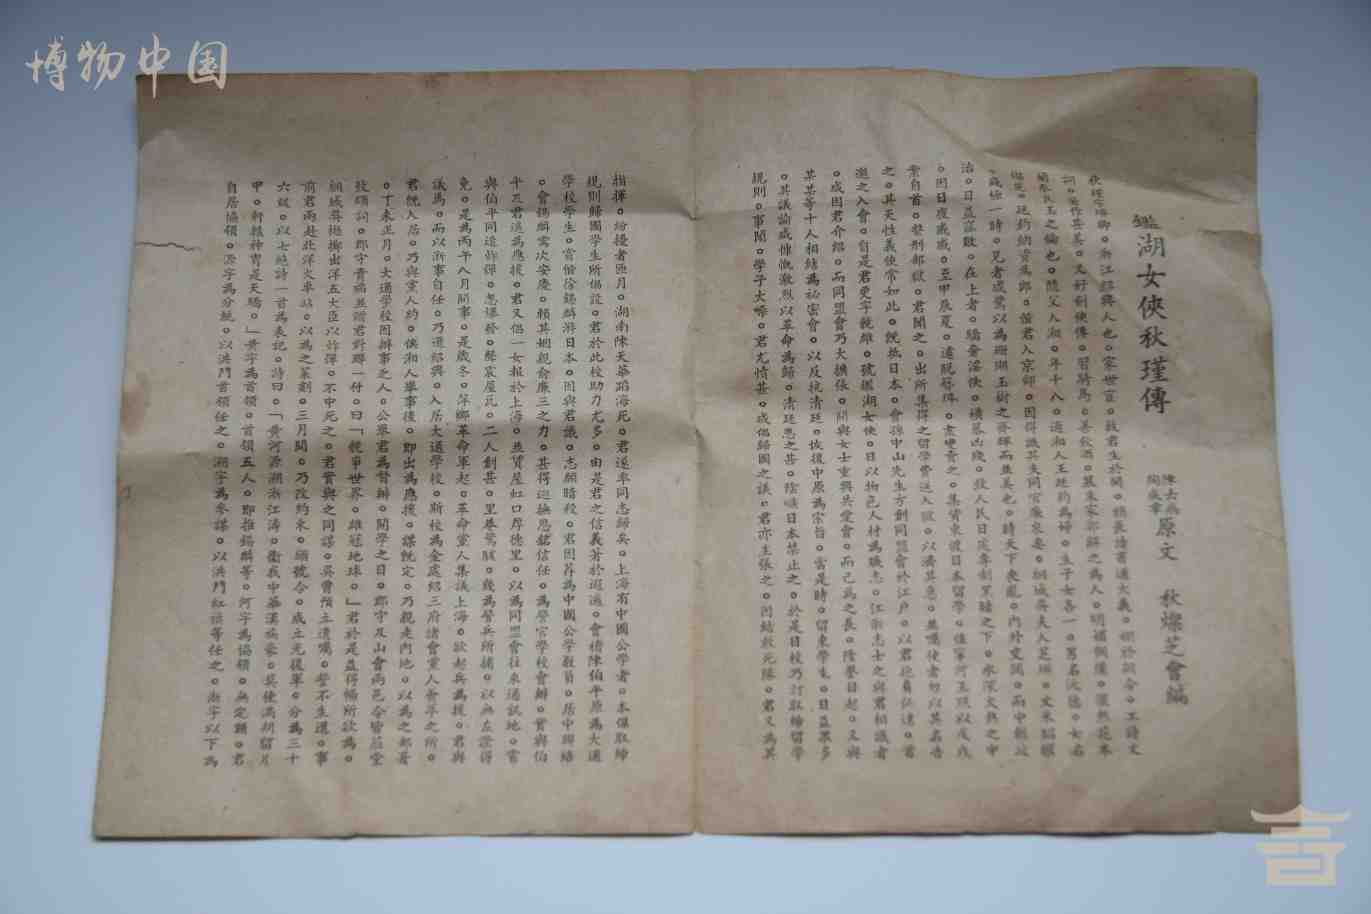 博物中国
鑑湖女俠秋瑾傳
陳去病
陶成章
原文
秋燦芝會編
秋瑾字璿卿。浙江紹興人也。家世宦。故君生於閩。稍長讀書通大義。嫻於詞令。工詩文
詞。著作甚美。又好劍俠傳。習騎馬。善飲酒。慕朱家郭解之為人。明媚倜儻。儼然花木
蘭秦良玉之倫也。隨父入湘。年十八。適湘人王廷鈞為婦。生子女各一。男名沅德。女名
燦芝。廷鈞納資為郎。偕君入京師。因得識其夫同官廉泉妻。桐城吳夫人芝瑛。文采昭耀
。盛極一時。見者咸驚以為珊瑚玉樹之齊輝而並美也。時天下喪亂。內外交鬨。而中朝政
治。日益窳敗。在上者。驕奢淫佚。橫暴凶殘。致人民日處專制黑暗之下。水深火熱之中
。因日夜戚戚。至甲辰夏。遽脫簪珥。盡變賣之。集資東渡日本留學。值寧河王照以戊戌
案自首。繫刑部獄。君聞之。出所集得之留學費送入獄。以濟其急。並囑使者勿以其名告
之。其天性義俠常如此。既抵日本。會孫中山先生方創同盟會於江戶。以君抱負佚達。首
邀之入會。自是君更字競雄。號鑑湖女俠。日以物色人材為職志。江浙志士之與君相識者
。咸因君介紹。而同盟會乃大擴張。間與女士重興共愛會。而己為之長。隆譽日起。又與
某某等十人相結為祕密會。以反抗清廷。恢復中原為宗旨。當是時。留東學生。日益眾多
。其議論咸慷慨激烈以革命為歸。清廷患之甚。陰嗾日本禁止之。於是日校乃訂取締留學
規則。事聞。學子大嘩。君尤憤甚。或倡歸國之議。君亦主張之。因結敢死隊。君又為其
指揮。紛擾者匝月。湖南陳天華蹈海死。君遂率同志歸矣。上海有中國公學者。本係取締
規則歸國學生所倡設。君於此校助力尤多。由是君之信義著於遐邇。會稽陳伯平原為大通
學校學生。嘗偕徐錫麟游日本。因與君識。志願暗殺。君因荐為中國公學教員。居中聯絡
。會錫麟需次安慶。賴其姻親俞廉三之力。甚得巡撫恩銘信任。為警官學校會辦。實與伯
平及君遠為應援。君又倡一女報於上海。並賃屋虹口厚德里。以為同盟會往來通訊地。嘗
與伯平同造炸彈。忽爆發。聲震屋瓦。二人創甚。里巷驚駭。幾為警兵所捕。以無左證得
免。是為丙午八月間事。是歲冬。萍鄉革命軍起。革命黨人集議上海。欲起兵為援。君與
議焉。而以浙事自任。乃還紹興。入居大通學校。斯校為金處紹三府諸會黨人薈萃之所。
君既入居。乃與黨人約。俟湘人舉事後。即出為應援。謀既定。乃親走內地。以為之部署
。丁未正月。大通學校因辦事乏人。公舉君為督辦。開學之日。郡守及山會兩邑令皆蒞堂
致頌詞。郡守貴福並贈君對聯一付。曰「競爭世界。雄冠地球。」君於是益得暢所欲為。
桐城吳樾擲出洋五大臣以炸彈。不中死之。君實與之同謀。吳曾預立遺囑。誓不生還。事
前君兩赴北洋火車站。以為之策劃。三月間。乃改約束。頒號令。成立光復軍。分為三十
六級。以七絕詩一首為表記。詩曰。「黃河源溯浙江潮。衛我中華漢族豪。莫使滿胡留片
甲。軒轅神胄是天驕。」黃字為首領。首領五人。即推錫麟等。河字為協領。無定額。君
自居協領。源字為分統。以洪門首領任之。溯字為參謀。以洪門紅旗等任之。浙字以下為